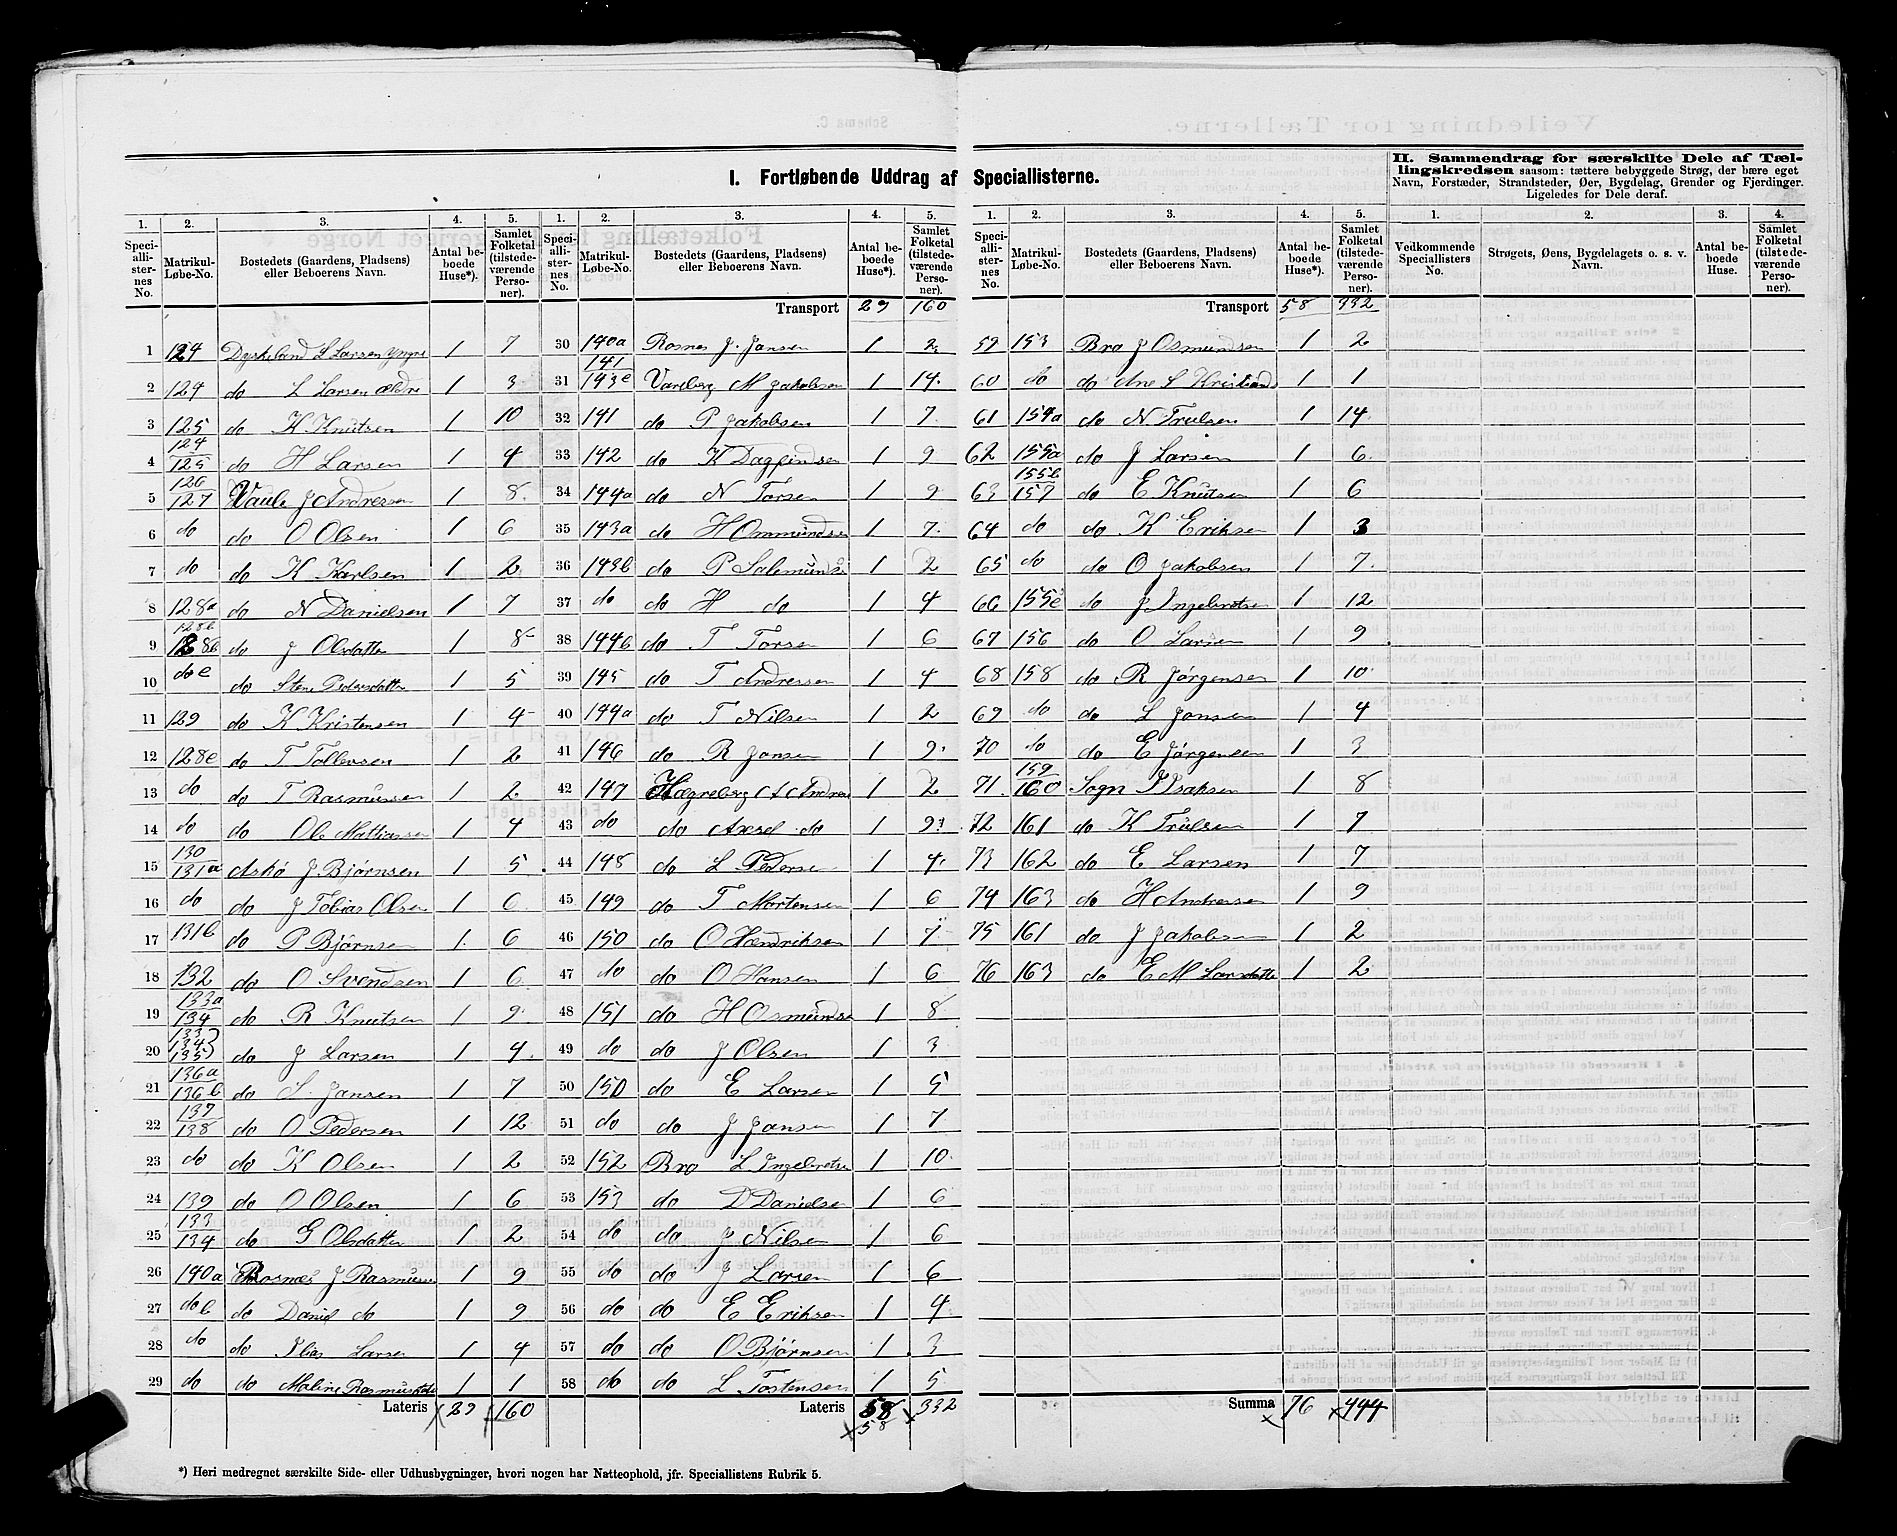 I. Fortløbende Uddrag af Speciallisterne.
II. Sammendrag for særskilte Dele af Tællingskredsen saasom: tættere bebyggede Strøg, der bære eget Navn, Forstæder, Strandsteder, Øer, Bygdelag, Grender og Fjerdinger. Ligeledes for Dele deraf.
1. 2. 3. 4. 5. 1. 2. 3. 4. 5.
Speciallisternes No. Matrikul-Løbe-No. Bostedets (Gaardens, Pladsens) eller Beboerens Navn. Antal beboede Huse*). Samlet Folketal (tilstedeværende Personer).
Speciallisternes No. Matrikul-Løbe-No. Bostedets (Gaardens, Pladsens) eller Beboerens Navn. Antal beboede Huse*). Samlet Folketal (tilstedeværende Personer).
1 124 Dyskeland L Larsen yngre 1 7
2 124 do L Larsen ældre 1 3
3 125 do K Knutsen 1 10
4 124/125 do H Larsen 1 4
5 126/127 Vaule J Andressen 1 8
6 do do O Olsen 1 6
7 do do K Karlsen 1 2
8 128a do N Danielsen 1 7
9 128b 128b do J Olsdatter 1 8
10 do c do Stine Pedersdatter 1 5
11 129 do K Kristensen 1 4
12 128c do T Tollevsen 1 2
13 do do T Rasmussen 1 2
14 do do Ole Mattiassen 1 4
15 130/131a Askø J. Bjørnsen 1 5
16 do do J Tobias Olsen 1 6
17 131b do P Bjørnsen 1 6
18 132 do O Svendsen 1 6
19 133a/134 do R Knutsen 1 9
20 133/134/135 do J Larsen 1 4
21 136a/136b do S. Jansen 1 7
22 137/138 do O Pedersen 1 12
23 do do K Olsen 1 2
24 139 do O Olsen 1 6
25 133/134 do G Olsdatter 1 2
26 140a Rosnes J Rasmussen 1 9
27 do b do Daniel do 1 9
28 do do Elias Larsen 1 4
29 do do Maline Rasmusdatter 1 1
Lateris 29 160
Transport 29 160
30 140a Rosnes J. Jansen 1 2
31 141/143c Vareberg M Jakobsen 1 14
32 141 do P Jakobsen 1 7
33 142 do K Dagfindsen 1 9
34 144a do N Torsen 1 9
35 143a do H Ommundsen 1 7
36 143b do P Salemunds 1 2
37 do do H do 1 4
38 144b do T Torsen 1 6
39 145 do T Andressen 1 4
40 144a do T Nilsen 1 2
41 146 do R Jansen 1 9
42 147 Hegreberg A Andre 1 2
43 do do Axsel do 1 9
44 148 do L Pederse 1 4
45 149 do T Mortensen 1 6
46 150 do O Hendriksen 1 7
47 do do O Hansen 1 6
48 151 do H Osmundse 1 8
49 do do J Olsen 1 3
50 150 do E Larsen 1 5
51 do do J Jansen 1 7
52 152 Bro L Ingebretse 1 10
53 153 do D Danielsen 1 6
54 do do J Nilsen 1 6
55 do do J Larsen 1 6
56 do do E Eriksen 1 4
57 do do O Bjørnsen 1 3
58 do do L Tostensen 1 5
Lateris 58 332
58
*) Heri medregnet særskilte Side- eller Udhusbygninger, hvori nogen har Natteophold, jfr. Speciallistens Rubrik 5.
1. 2. 3. 4. 5. 1. 2. 3. 4.
Speciallisternes No. Matrikul-Løbe-No. Bostedets (Gaardens, Pladsens) eller Beboerens Navn. Antal beboede Huse*). Samlet Folketal (tilstedeværende Personer).
Vedkommende Speciallisters No. Strøgets, Øens, Bygdelagets o. s. v. Navn. Antal beboede Huse. Samlet Folketal (tilstedeværende Personer).
Transport 58 332
59 153 Bro J Osmundsen 1 2
60 do do Ane S Kristiands 1 1
61 154a do N Trulsen 1 14
62 155a do J Larsen 1 6
63 155b/157 do E Knutsen 1 6
64 do do K Eriksen 1 3
65 do do O Jakobsen 1 7
66 155c do J Ingebretse 1 12
67 156 do O Larsen 1 9
68 158 do R Jørgensen 1 10
69 do do L Jansen 1 4
70 do do E Jørgensen 1 3
71 159/160 Sogn I Isaksen 1 8
72 161 do K Trulsen 1 7
73 162 do E Larsen 1 7
74 163 do H Andersen 1 9
75 161 do J Jakobsen 1 2
76 163 do E M Larsdatte 1 2
Summa 76 444